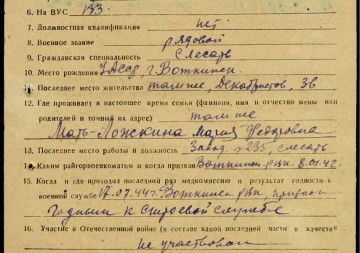 6. На ВУС 133
7. Должностная квалификация нет
8. Военное звание рядовой
9. Гражданская специальность Слесарь
10. Место рождения УАССР, г. Воткинск
11. Последнее место жительства там же, Декабристов, 38
12. Где проживает в настоящее время семья (фамилия, имя и отчество жены или
родителей и точный их адрес) там же
Мать-Ложкина Мария Федоровна
13. Последнее место работы и должность Завод № 235, слесарь
14. Каким райгорвоенкоматом и когда призван Воткинск. рвк. 8.01.42г.
15. Когда и где проходил последний раз медкомиссию и результат годности к
военной службе 17.07.44г. Воткинск рвк, признан
Годным к строевой службе
16. Участие в Отечественной войне (в составе какой последней части в качестве
не участвовал